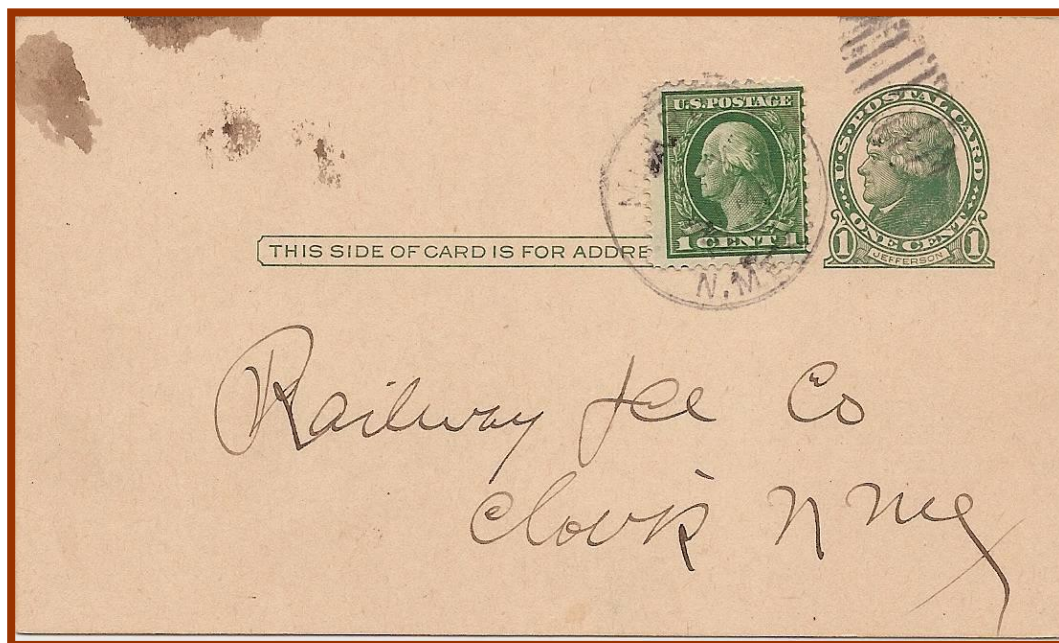 U.S. POSTAGE
1 CENT 1
U.S. POSTAL CARD
ONE CENT
1 JEFFERSON 1
THIS SIDE OF CARD IS FOR ADDRE
N.MEX
Railway Ice Co
Clovis N Mex